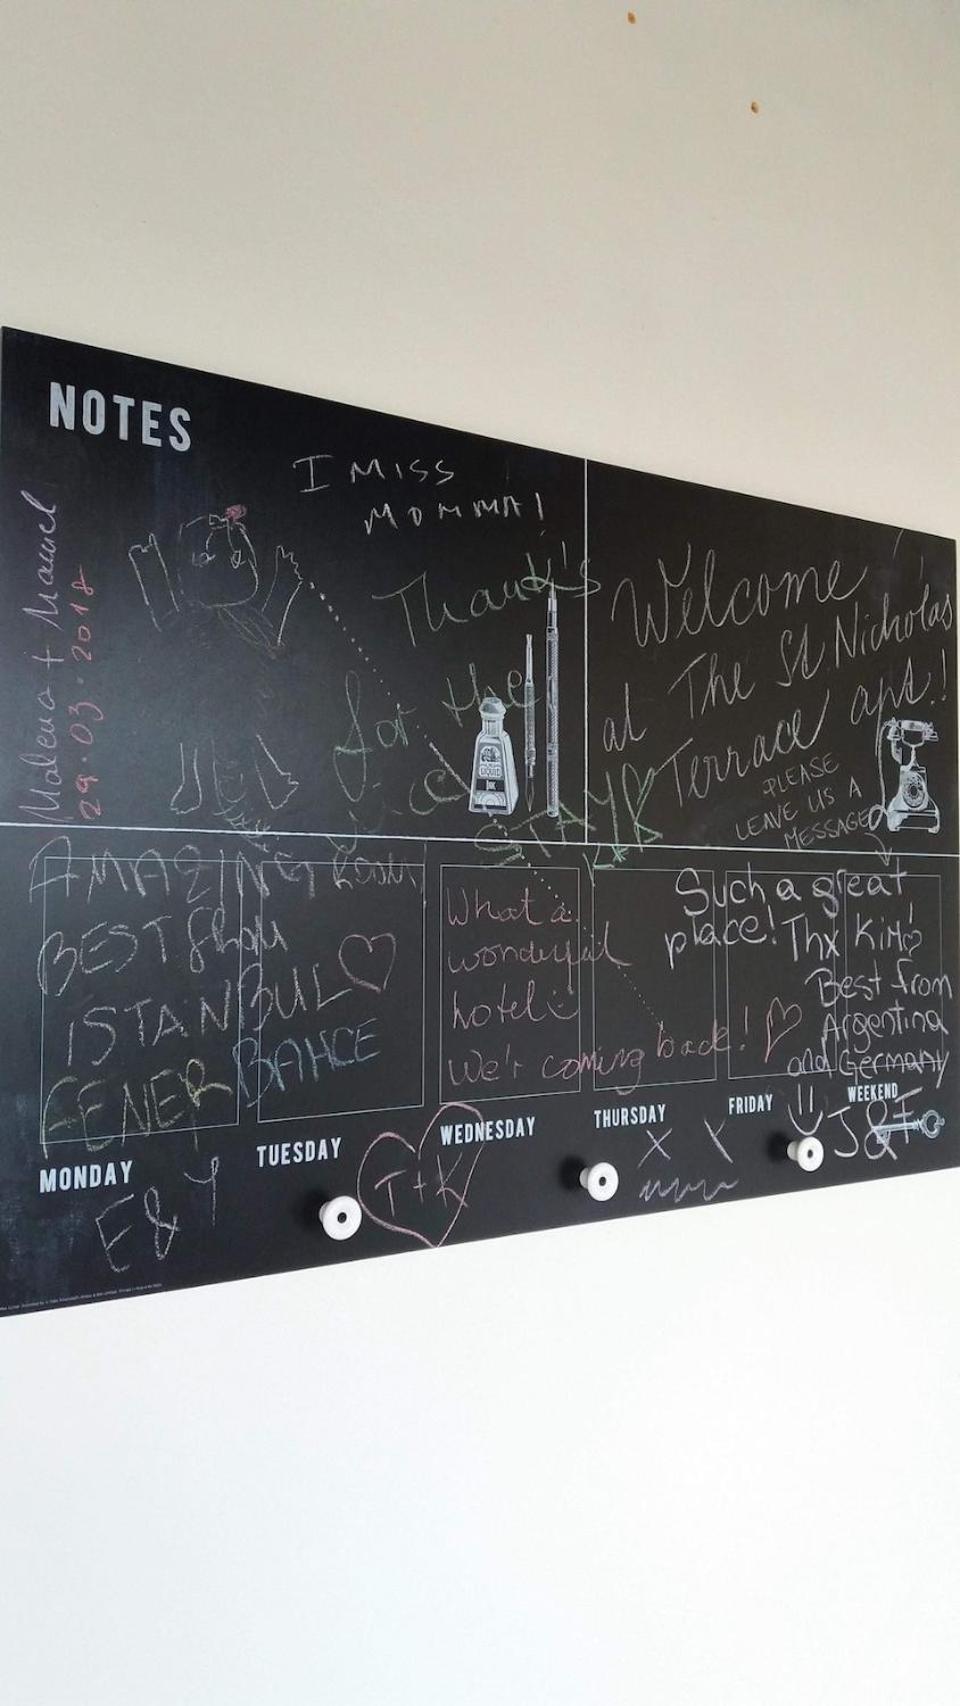 NOTES
I MISS
MOMMA!
Malena + Manuel
29.03.2018
Thank's
for the
nice
STAY
Welcome
at The St. Nicholas
Terrace apts!
PLEASE
LEAVE US A
MESSAGE
AMAZING ROOM
BEST FROM
ISTANBUL
FENER BAHCE
What a
wonderful
hotel
We'r coming back!
Such a great
place! Thx Kim
Best from
Argentina
and Germany
J&F
MONDAY
TUESDAY
WEDNESDAY
THURSDAY
FRIDAY
WEEKEND
E & Y
T+K
X X